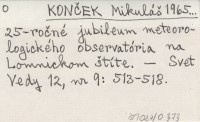 O KONČEK Mikuláš 1965...
25-ročné jubileum meteoro-
logického observatória na
Lomnickom štíte. — Svet
Vedy 12, nr 9: 513-518.